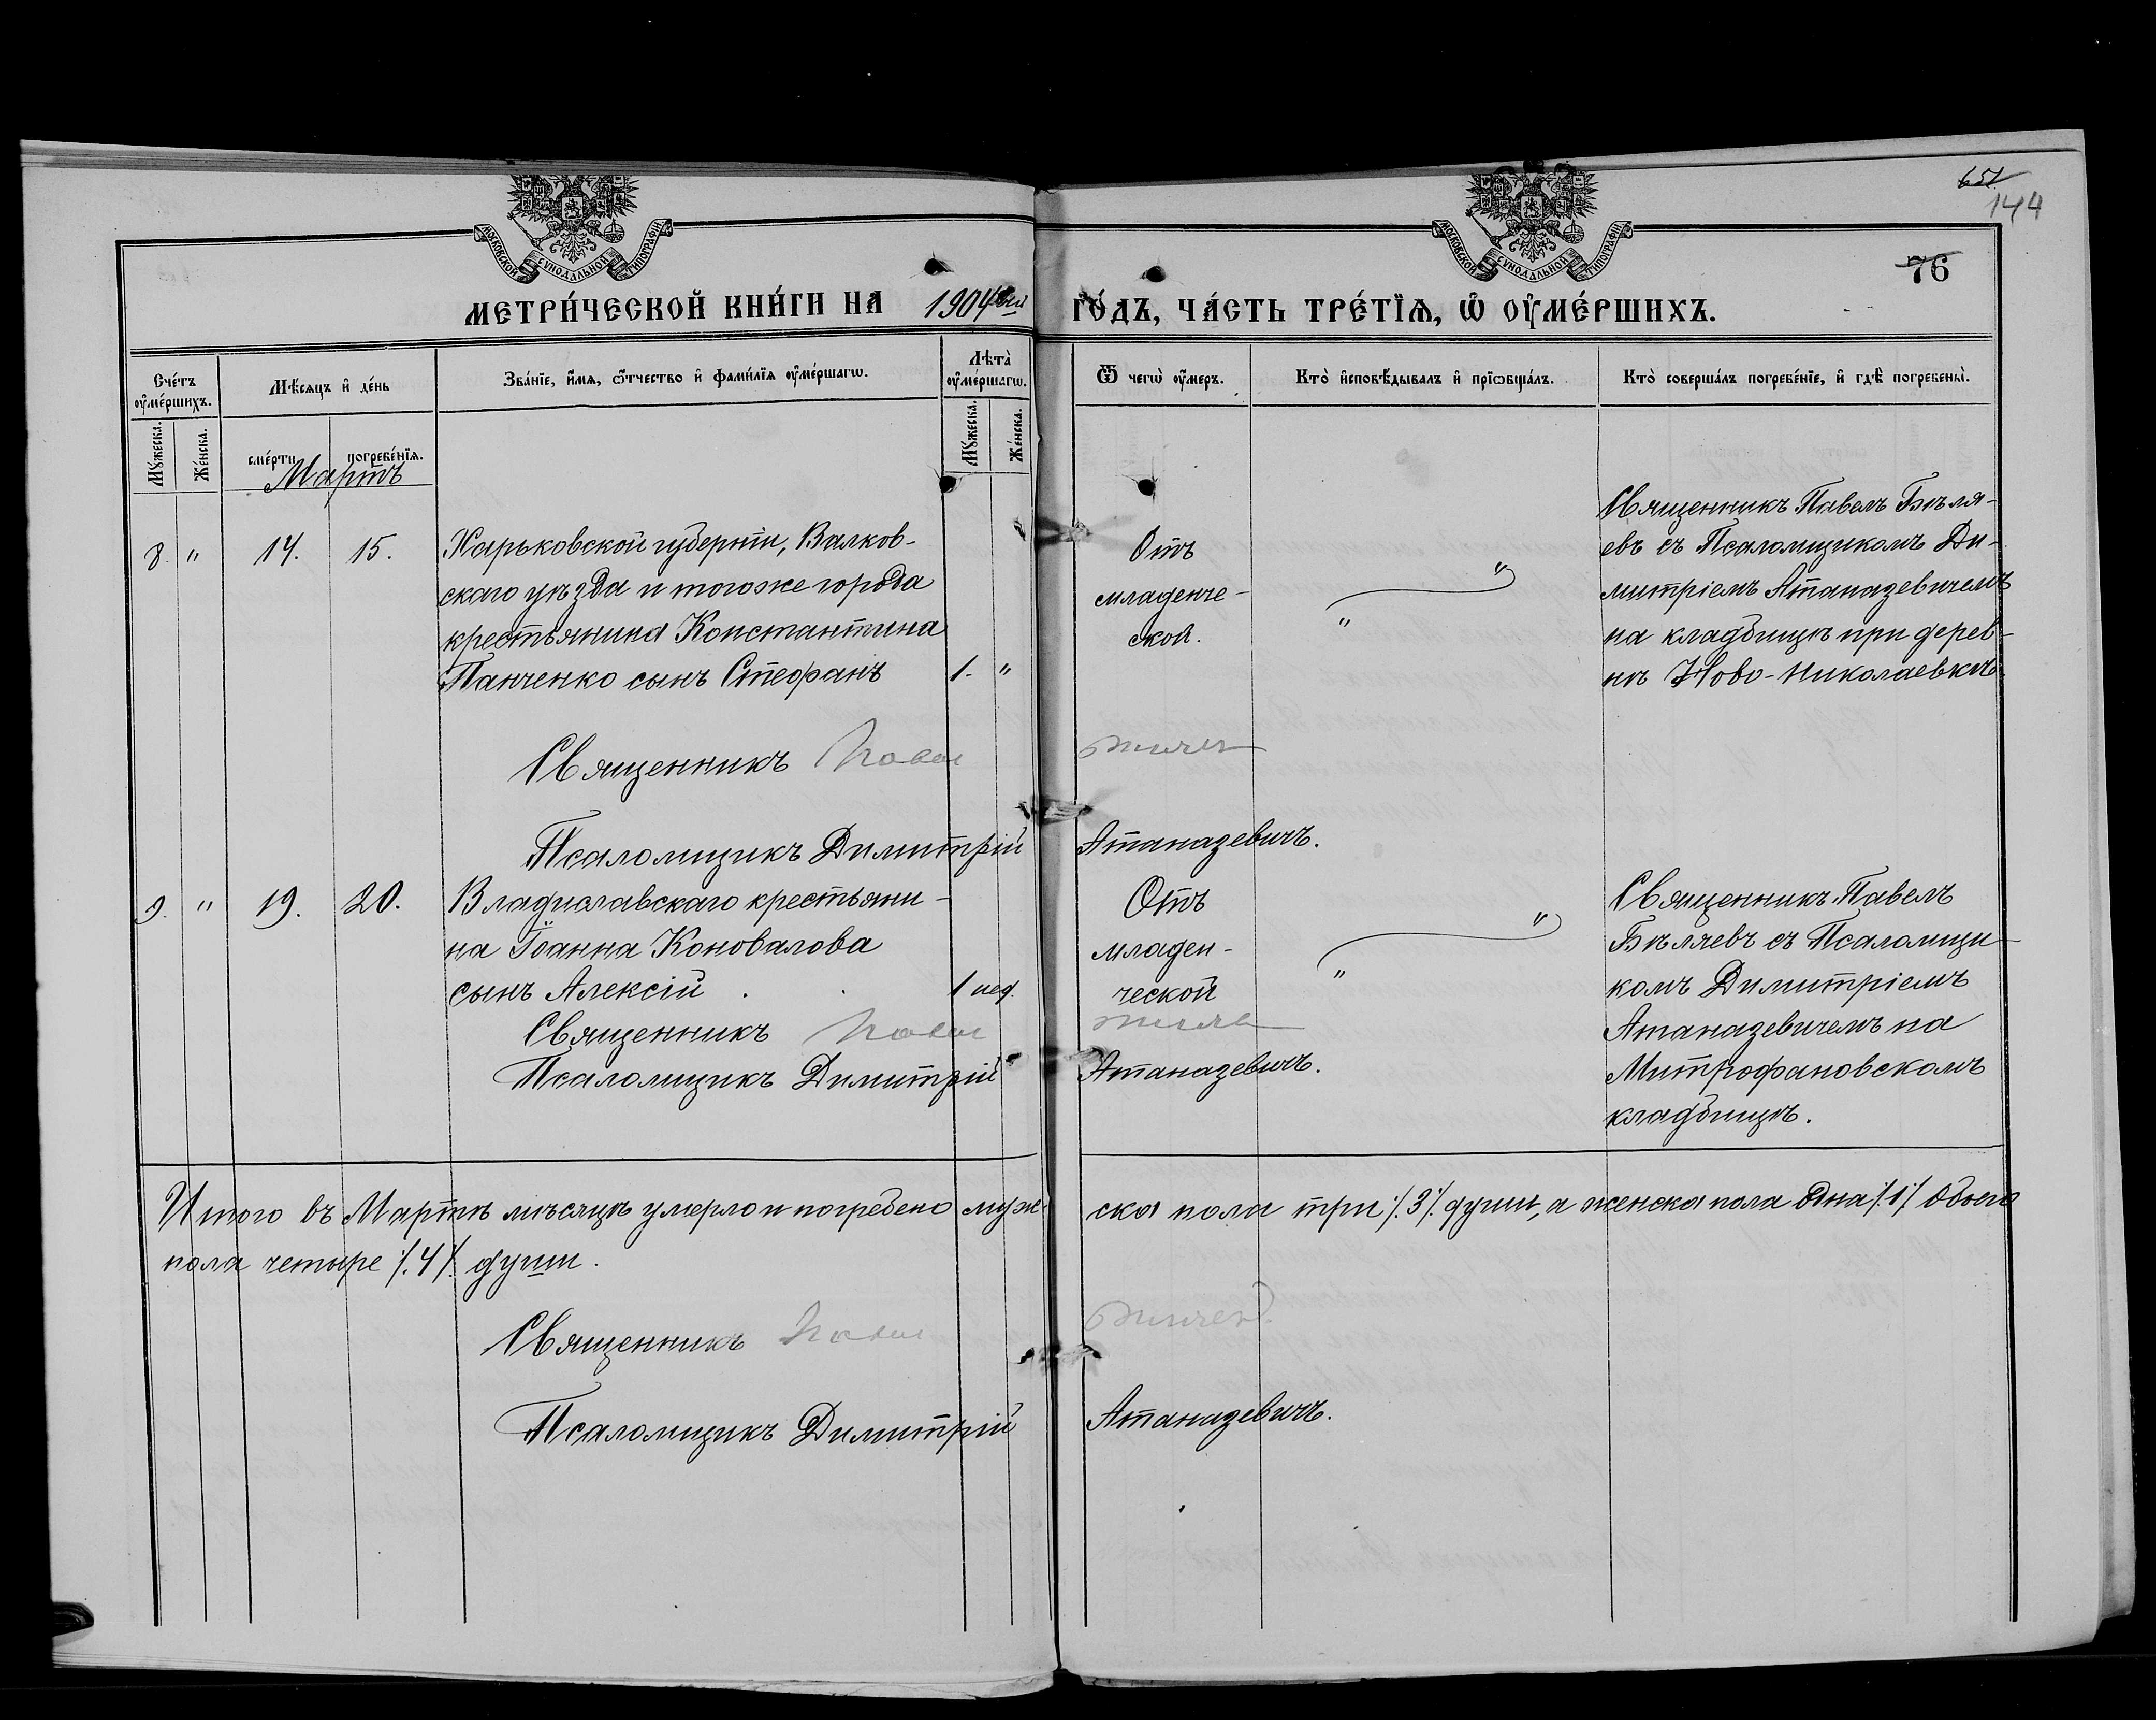 651
144
76
МОСКОВСКОЙ СУНОДАЛЬНОЙ ТИПОГРАФІИ
МОСКОВСКОЙ СУНОДАЛЬНОЙ ТИПОГРАФІИ
МЕТРИ́ЧЕСКОЙ КНИ́ГИ НА 1904 ГО́ДЪ, ЧА́СТЬ ТРЕ́ТЇѦ, Ѡ҆ ОУ҆МЕ́РШИХЪ.
Сче́тъ оу҆ме́ршихъ.
Мѣ́сяцъ и҆ де́нь
Зва́нїе, и҆́мя, ѻ҆́тчество и҆ фами́лїя оу҆ме́ршагѡ.
Лѣта̀ оу҆ме́ршагѡ.
Ѿ чегѡ̀ оу҆́меръ.
Кто̀ и҆сповѣ́дывалъ и҆ прїѡбща́лъ.
Кто̀ соверша́лъ погребе́нїе, и҆ гдѣ̀ погребены̀.
Му́жеска.
Же́нска.
сме́рти
погребе́нїя.
Му́жеска.
Же́нска.
Мартъ
8. " 14. 15. Харьковской губерніи, Валков-
скаго уѣзда и того же города
крестьянина Константина
Панченко сынъ Стефанъ 1. "
Отъ
младенче-
ской.
" "
Священникъ Павелъ Бѣля-
евъ съ Псаломщикомъ Ди-
митріемъ Атаназевичемъ
на кладбищѣ при дерев-
нѣ Ново-Николаевкѣ.
Священникъ Павел
Псаломщикъ Димитрій Атаназевичъ.
9. " 19. 20. Владиславскаго крестьяни-
на Іоанна Коновалова
сынъ Алексій . 1 нед.
Отъ
младен-
ческой
" "
Священникъ Павелъ
Бѣляевъ съ Псаломщи-
комъ Димитріемъ
Атаназевичемъ на
Митрофановскомъ
кладбищѣ.
Священникъ Павел
Псаломщикъ Димитрій Атаназевичъ.
Итого въ Мартѣ мѣсяцѣ умерло и погребено муже-ска пола три ⁒3⁒ души, а женска пола одна ⁒1⁒ обоего
пола четыре ⁒4⁒ души.
Священникъ Павел
Псаломщикъ Димитрій Атаназевичъ.